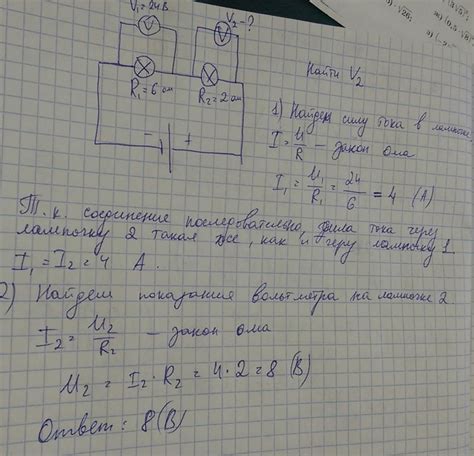 V₁=24В
V₂-?
V
V
R₁=6 ом
R₂=2 ом
- +
Найти V₂
1) Найдем силу тока в лампочке
I = U/R – закон ома
I₁ = U₁/R₁ = 24/6 = 4 (А)
Т.к. соединение последовательно, сила тока через
лампочку 2 такая же, как и через лампочку 1
I₁ = I₂ = 4 А.
2) Найдем показания вольтметра на лампочке 2.
I₂ = U₂/R₂ – закон ома
U₂ = I₂·R₂ = 4·2 = 8 (В)
Ответ: 8 (В)